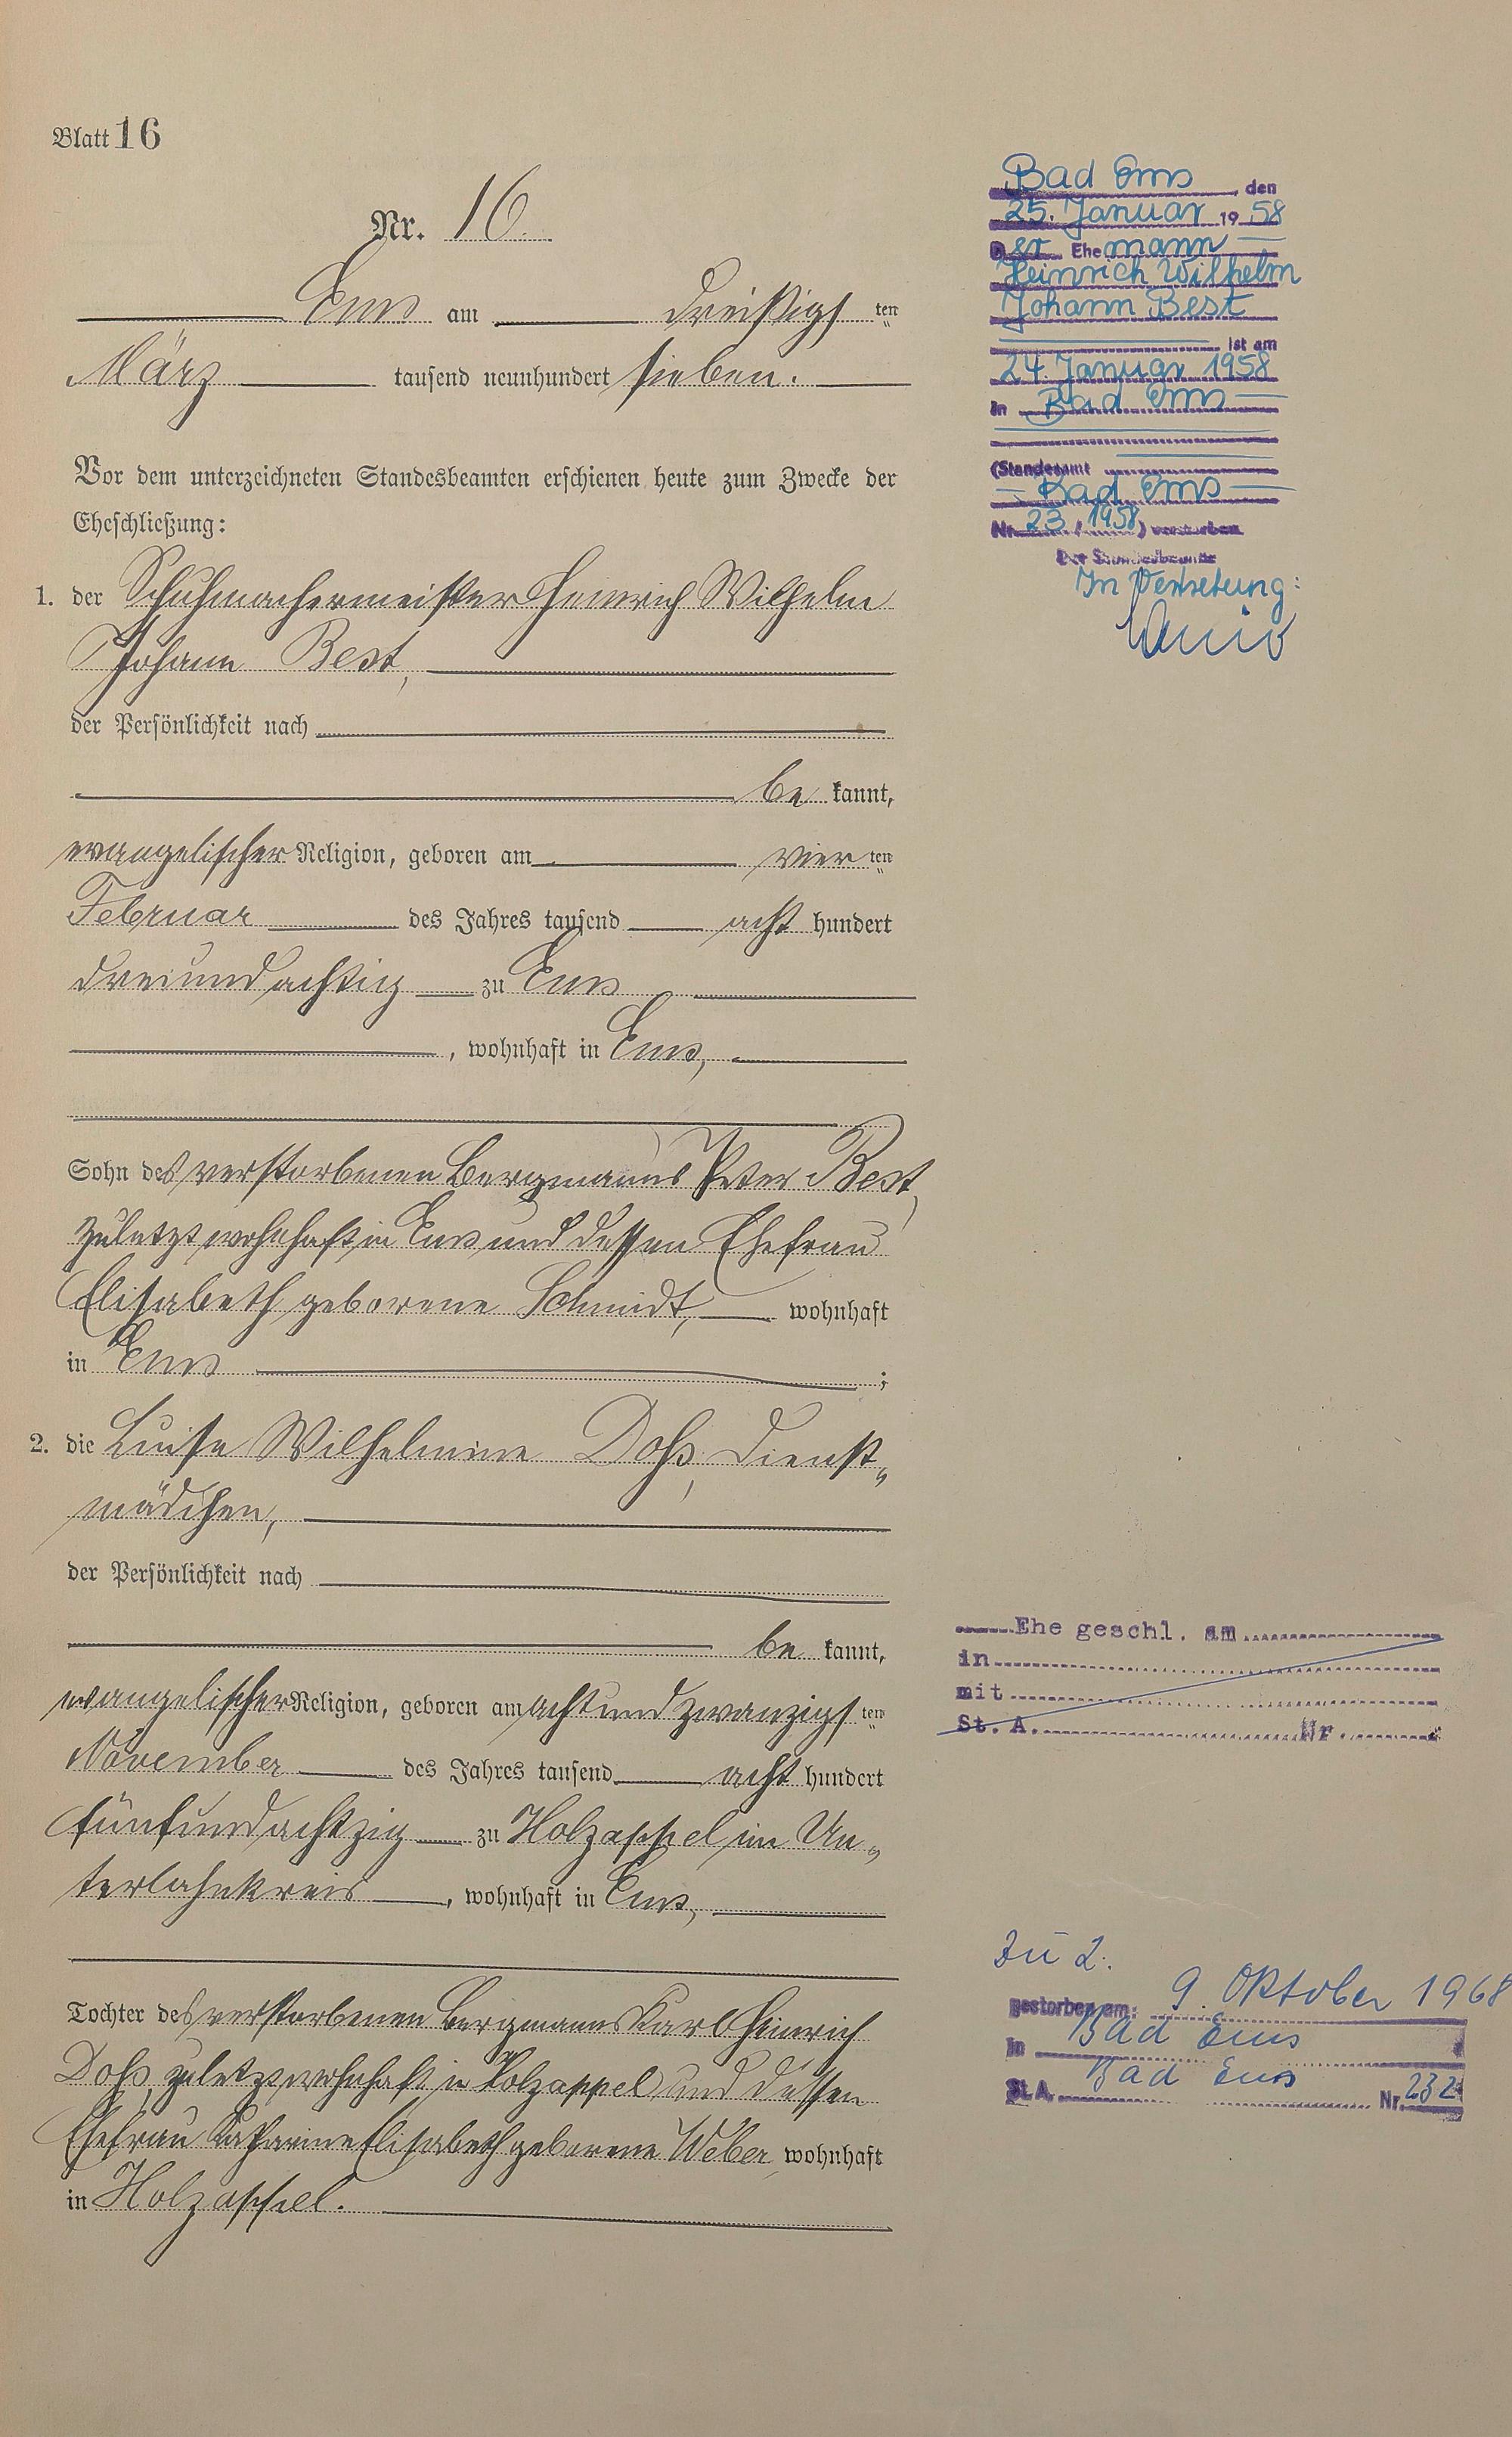 Blatt 16
Nr. 16.
Ems am dreißigsten
März tausend neunhundert sieben.
Vor dem unterzeichneten Standesbeamten erschienen heute zum Zwecke der
Eheschließung:
1. der Schuhmachermeister Heinrich Wilhelm
Johann Best,
der Persönlichkeit nach
be kannt,
evangelischer Religion, geboren am vier ten
Februar des Jahres tausend acht hundert
dreiundachtzig zu Ems
, wohnhaft in Ems,
Sohn des verstorbenen Bergmanns Peter Best,
zuletzt wohnhaft in Ems und dessen Ehefrau
Elisabeth geborene Schmidt, wohnhaft
in Ems ;
2. die Luise Wilhelmine Dohs, Dienst„
mädchen,
der Persönlichkeit nach
be kannt,
evangelischer Religion, geboren am achtundzwanzigsten
November des Jahres tausend acht hundert
fünfundachtzig zu Holzappel im Un„
terlahnkreis, wohnhaft in Ems,
Tochter des verstorbenen Bergmanns Karl Heinrich
Dohs, zuletzt wohnhaft in Holzappel und dessen
Ehefrau Katharine Elisabeth geborene Weber, wohnhaft
in Holzappel.
Bad Ems, den
25. Januar 1958
Der Ehemann
Heinrich Wilhelm
Johann Best
ist am
24. Januar 1958
in Bad Ems
(Standesamt
Bad Ems
Nr. 23 / 1958) verstorben
Der Standesbeamte
In Vertretung:
Ehe geschl. am
in
mit
St. A. Nr.
Zu 2.
gestorben am: 9. Oktober 1968
in Bad Ems
St. A. Bad Ems Nr. 232